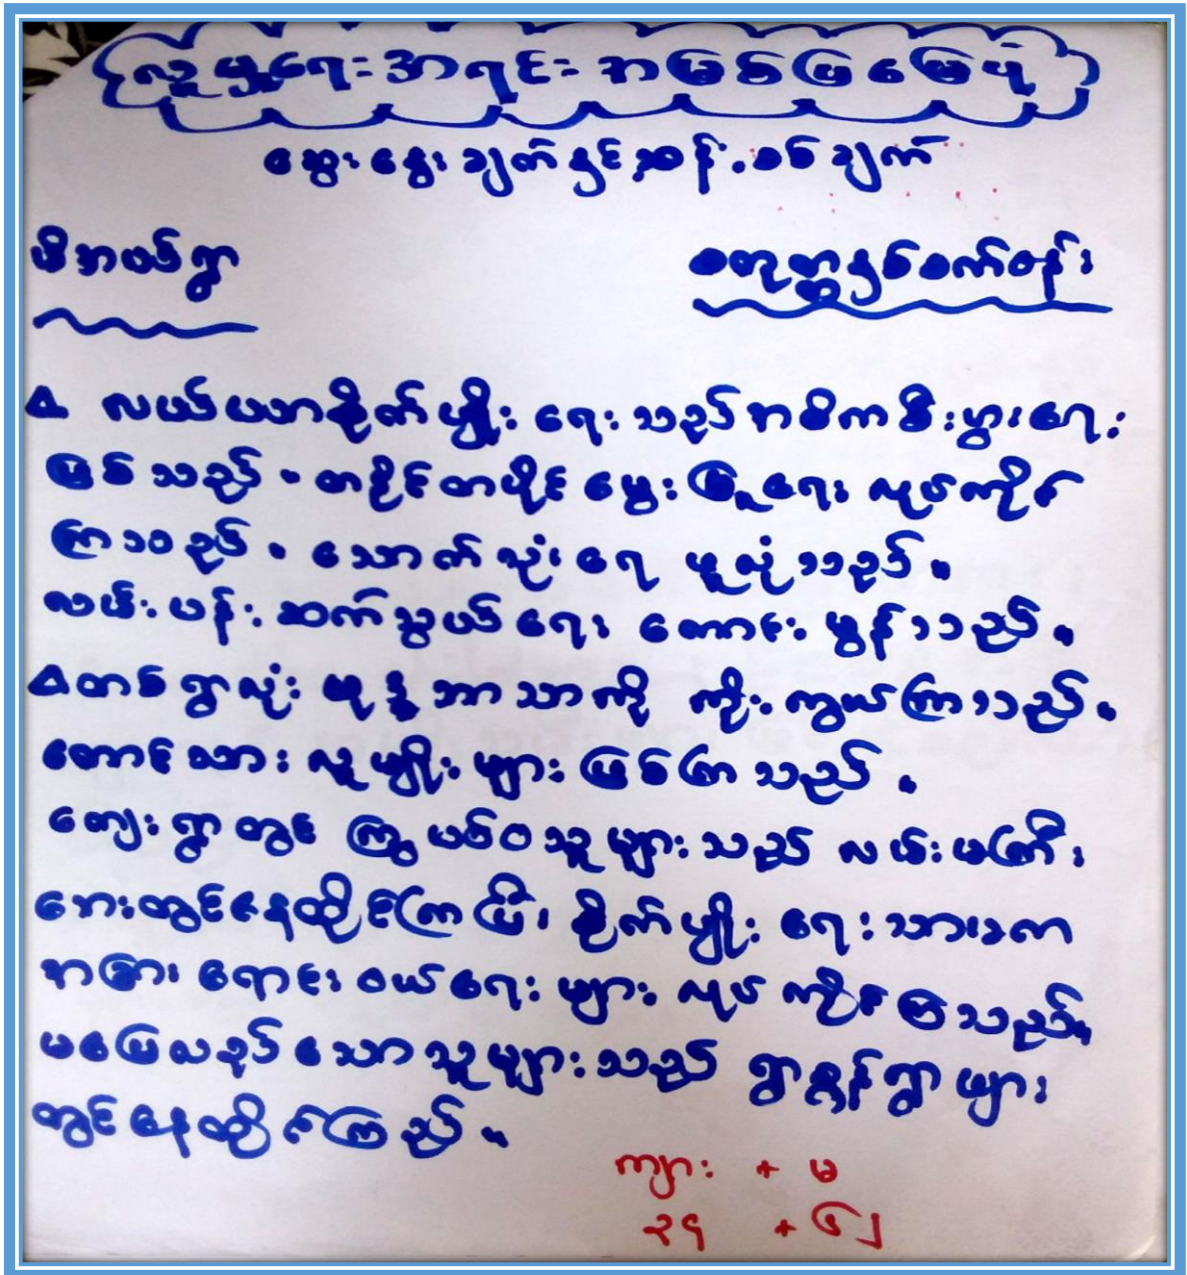 လူမှုရေးအရင်းအမြစ်ပြမြေပုံ
ဆွေးနွေးချက်နှင့်ဆန်းစစ်ချက်
ဖိအယ်ရွာ
စတုတ္ထနှစ်ဝက်ဝန်း
လယ်ယာစိုက်မျိုး ရေးသည်အဓိကစီးပွားရေး
ဖြစ်သည်။ တပိုင်တပိုင်မွေးမြူရေး လုပ်ကိုင်
ကြသည်။ သောက်သုံးရေ ဖူလုံသည်။
လမ်းပန်းဆက်သွယ်ရေး ကောင်းမွန်သည်။
တစ်ရွာလုံး ဗုဒ္ဓဘာသာကို ကိုးကွယ်ကြသည်။
တောင်သားလူမျိုးများဖြစ်ကြသည်။
ကျေးရွာတွင် ကြွယ်ဝသူများသည် လမ်းမကြီး
ဘေးတွင်နေထိုင်ကြပြီး စိုက်မျိုးရေးသာမက
အခြား ရောင်းဝယ်ရေးများ လုပ်ကိုင်ကြသည်။
မပြေလည်သောသူများသည် ရွာစွန်ရွာဖျား
တွင်နေထိုင်ကြည်။
ကျား + မ
၂၄ + ၆၂